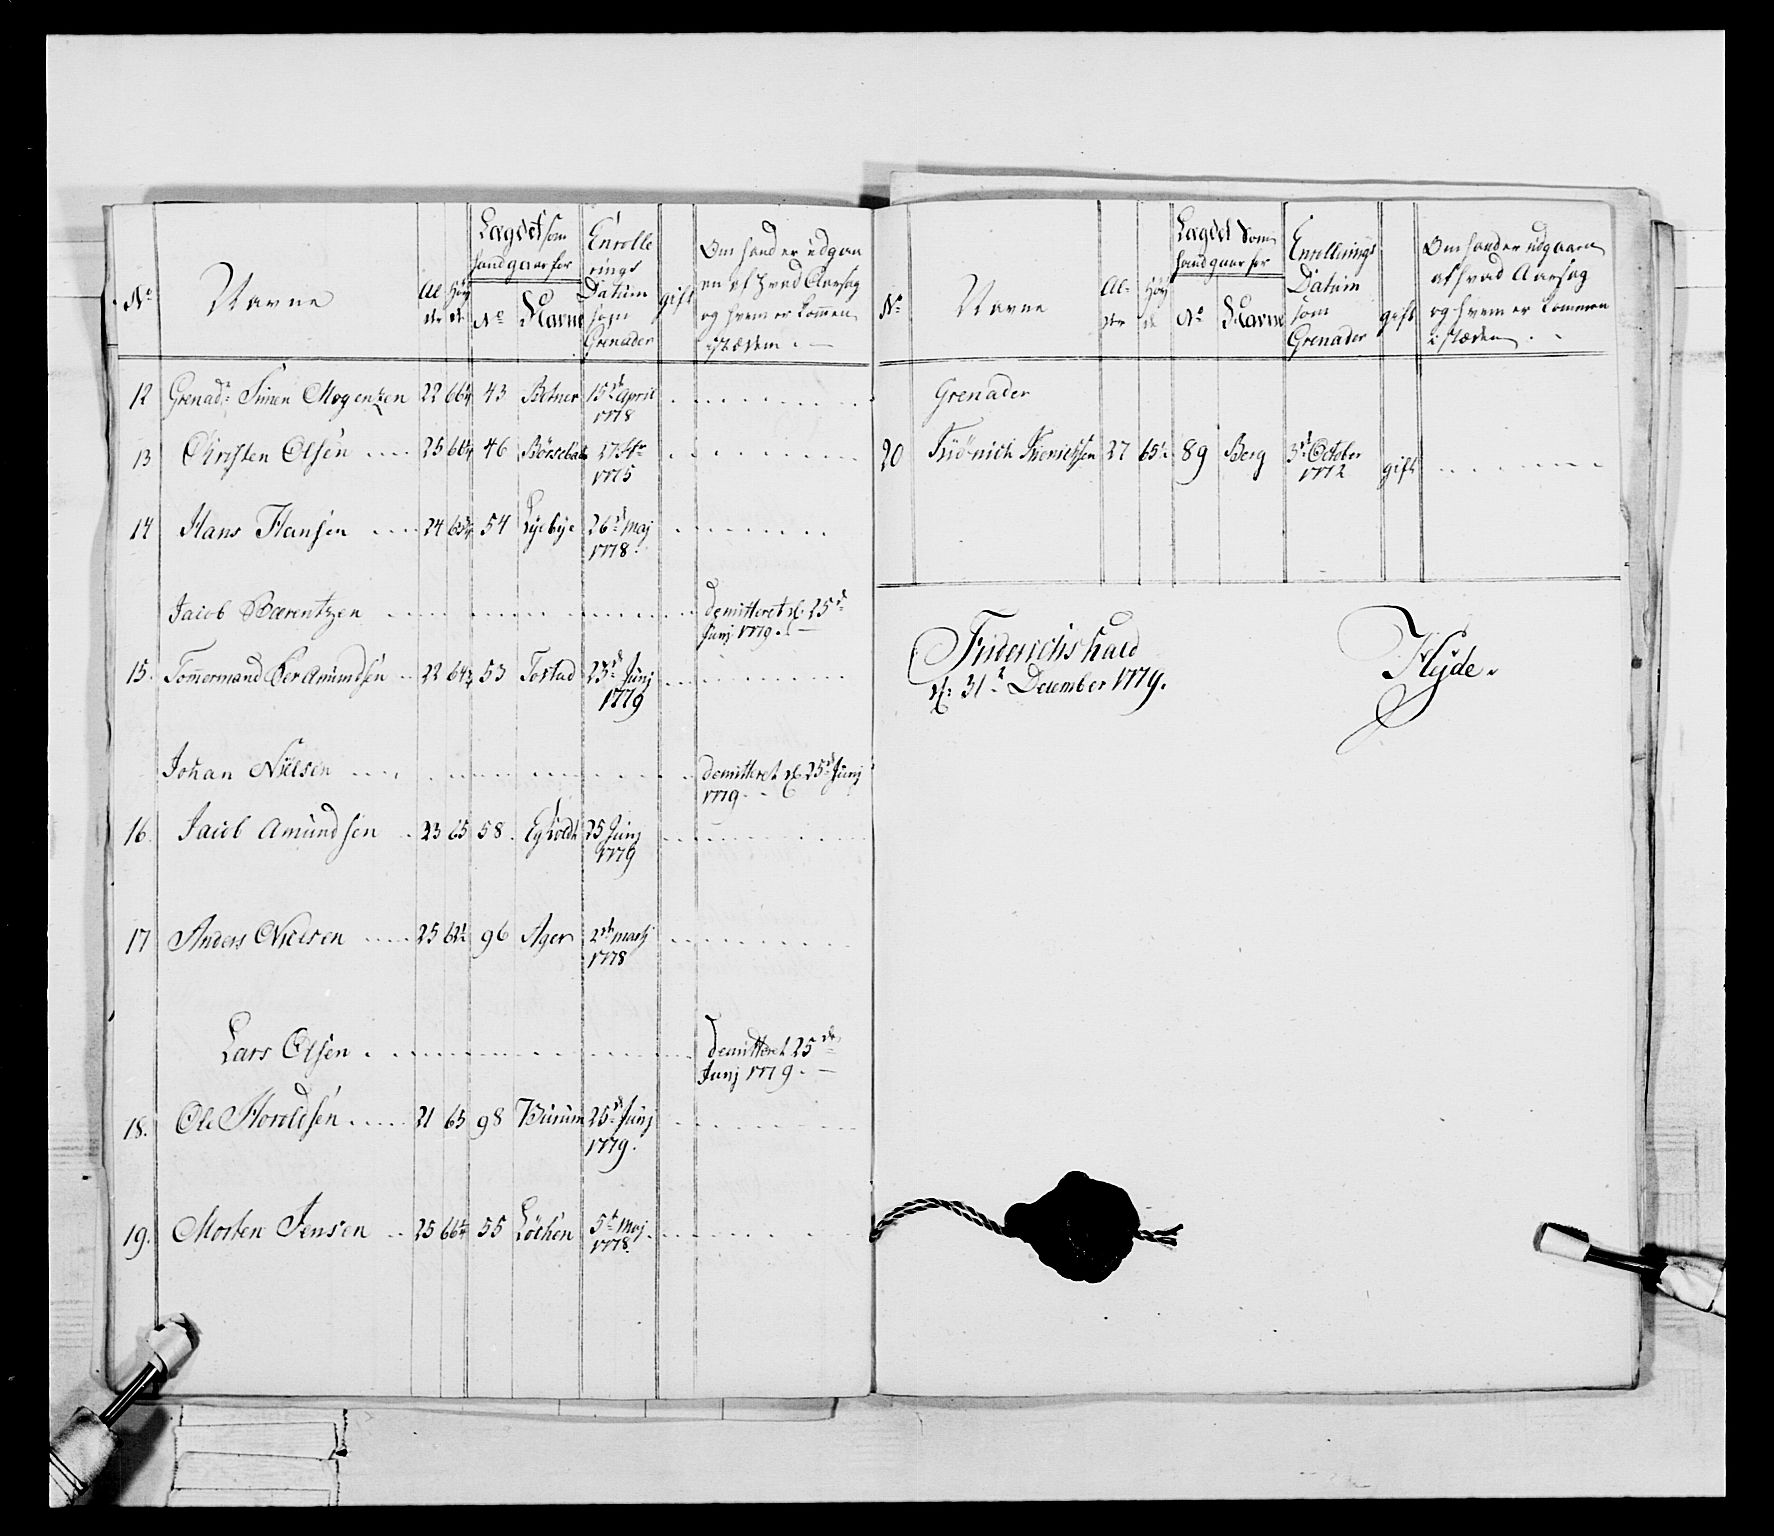 No Navne Al der Høy de Lægdet som hand gaar for No Navne Enrolle rings Datum som Grenader gift Om hand er udgaa en af hvad Aarsag og hvem er kommen i stæden
12 Grenadr Simen Mogensen 22 43 Botner 15de April 1778
13 Christen Olsen 25 46 1775
14 Hans Hansen 24 54 Lyebye 26de Maj 1778.
Jacob Bærentzen demitteret d. 25de Junj 1779.
15. Tømmermand Per Amundsen 22 53 Tostad 25de Junj 1779
Johan Nielsen demitteret d. 25de Junj 1779.
16. Jacob Amundsen 23 65 58. 25 Junj 1779
17 Anders Nielsen 25 96 Ager 1778
Lars Olsen demitteret 25de Junj 1779.
18. Ole 21 65 98 25de Junj 1779.
19. Morten Jensen 25 55 Løchen 5te Maj 1778.
No Navne Al- der Høy de Lægdet som hand gaar for No Navne Enrollerings Datum som Grenader gift Om hand er udgaaen af hvad Aarsag og hvem er kommen i stæden.
Grenader
20 27 89 Berg 3de October 1772 gift
Friderichshald
d: 31te December 1779.
Hejde.